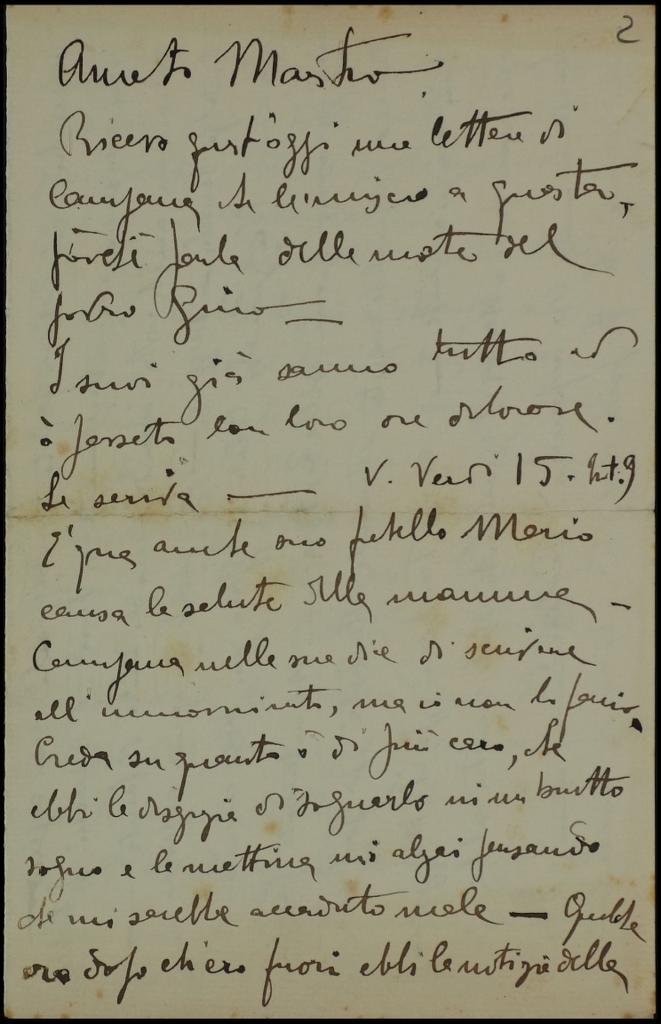 2
Amato Maestro
Ricevo quest'oggi una lettera di
Campana che le unisco a questa,
perchè parla della morte del
povero Gino
I suoi già sanno tutto ed
ò passato con loro ore dolorose.
Le scriva — V. Verdi 15. int. 9
E' qua anche suo fratello Mario
causa la salute della mamma —
Campana nella sua dice di scrivere
all' , ma io non lo faccio.
Creda su quanto ò di più caro, che
ebbi la disgrazia di sognarlo in un brutto
sogno e la mattina mi alzai pensando
che mi sarebbe accaduto male — Qualche
ora dopo ch'ero fuori ebbi la notizia della